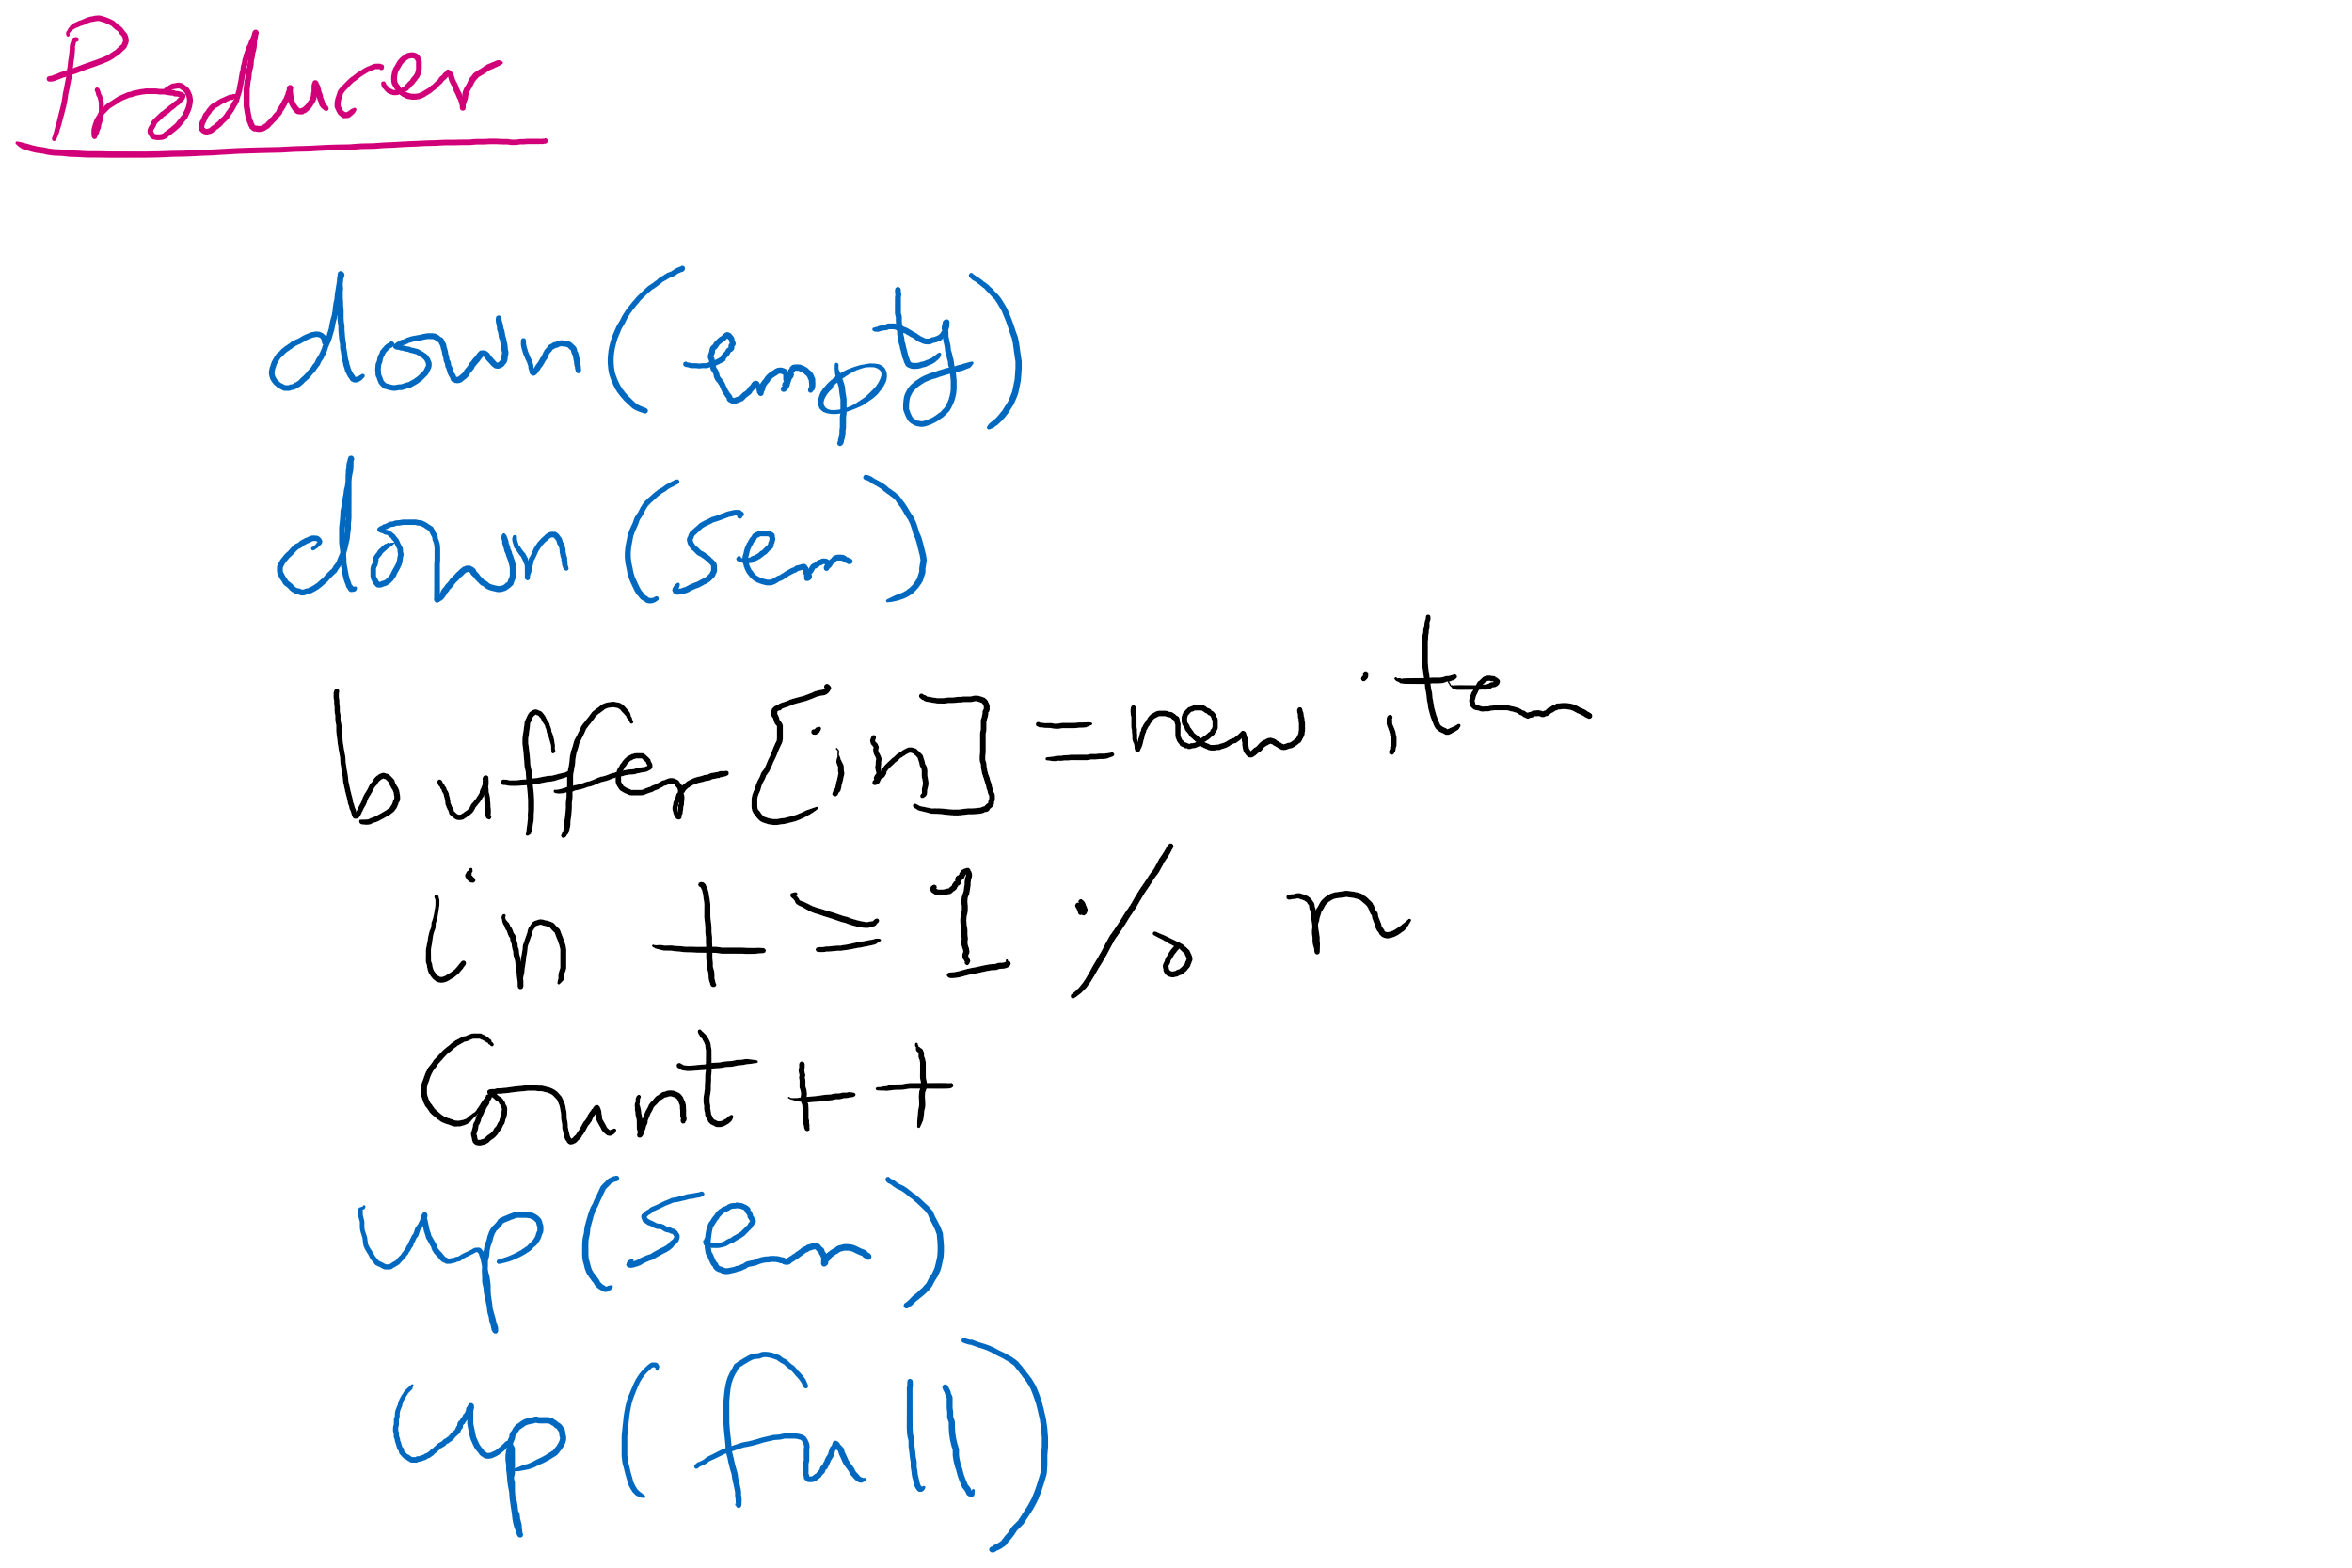 Producer
down(empty)
down(sem)
buffer[in]=new item
in +=1 % n
Count++
up(sem)
up(full)